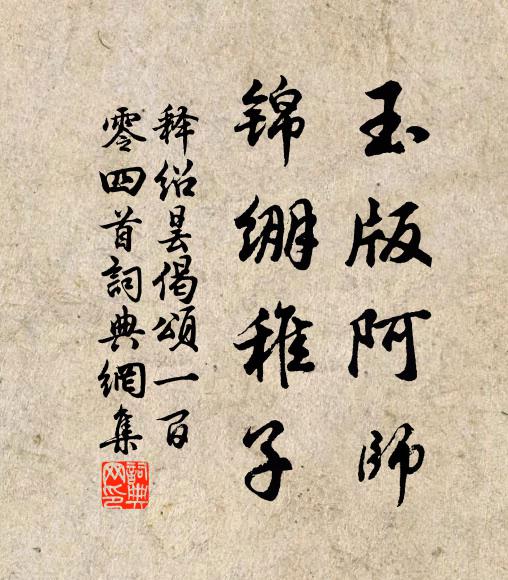 玉版阿师
锦绷稚子
释绍昙偈颂一百
零四首詞典網集
詞典网印